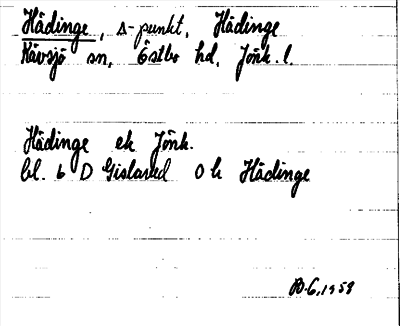 Hädinge, Δ-punkt, Hädinge
Kävsjö sn, Östbo hd, Jönk. l.
Hädinge ek Jönk.
bl. 6 D Gislaved O h Hädinge
1958